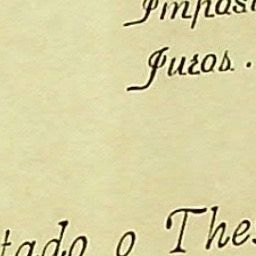 Impost
Juros.
tado o The